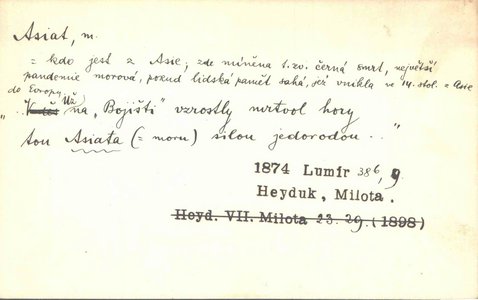 Asiat, m.
= kdo jest z Asie; zde míněna t. zv. černá smrt, největší
pandemie morová, pokud lidská paměť sahá, jež vnikla v 14. stol. z Asie
do Evropy.
„.. Už na „Bojišti" vzrostly mrtvol hory
tou Asiata (= moru) silou jedorodou .. "
1874 Lumír 386, 9
Heyduk, Milota.
Heyd. VII. Milota 23. 29. (1898)